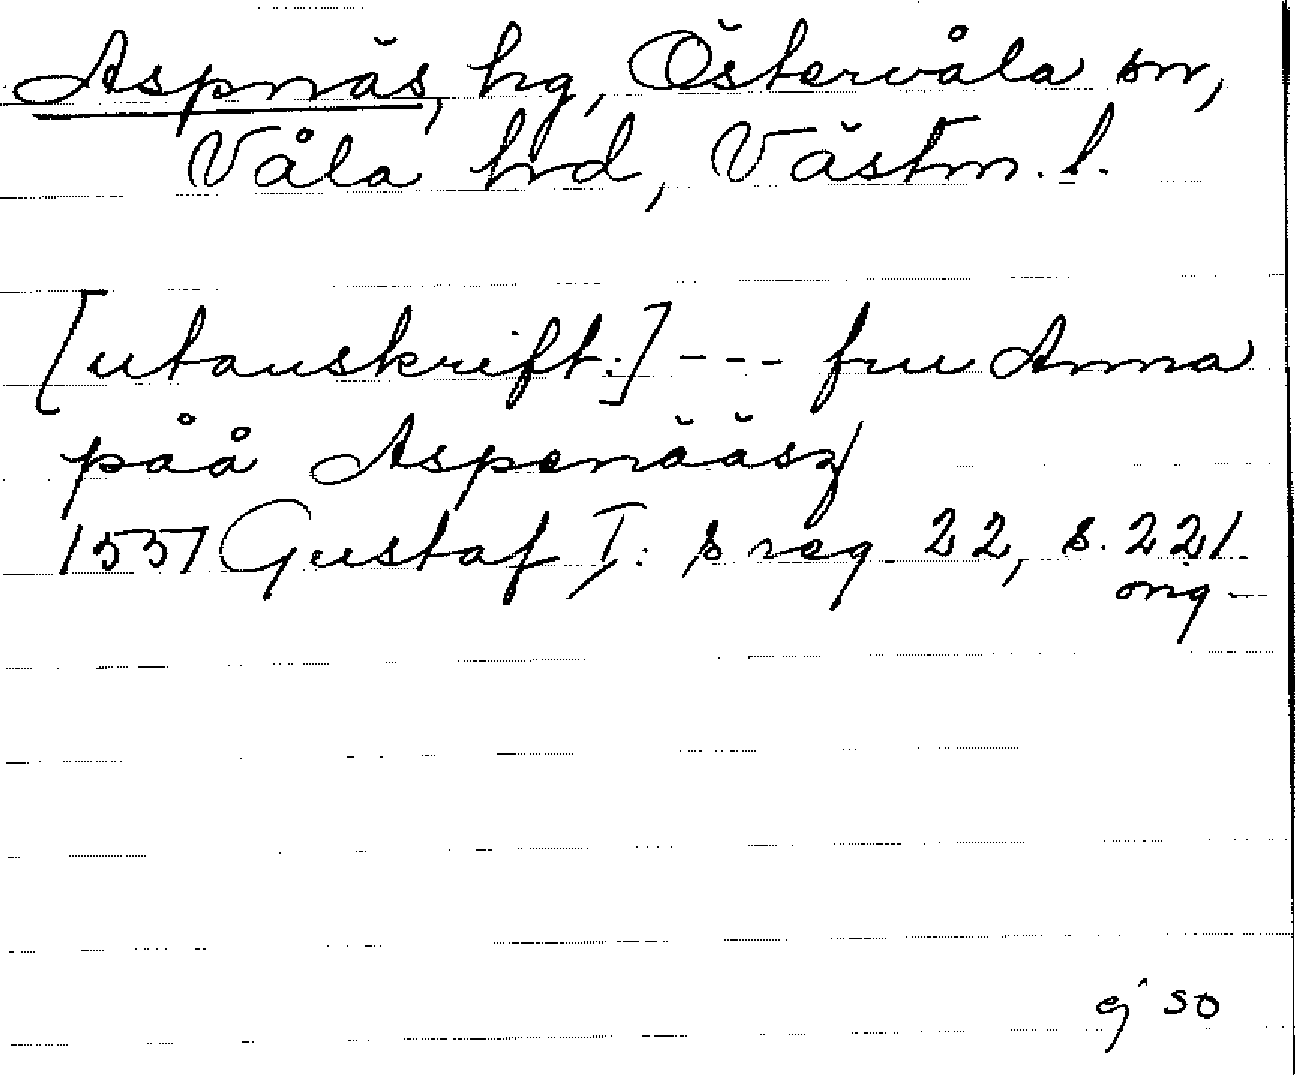 Aspnäs, hg, Östervåla sn,
Våla hrd, Västm. l.
[utanskrift:] --- fru Anna
påå Aspenääsz
1551 Gustaf I: s reg 22, s. 221
orig
ej SO